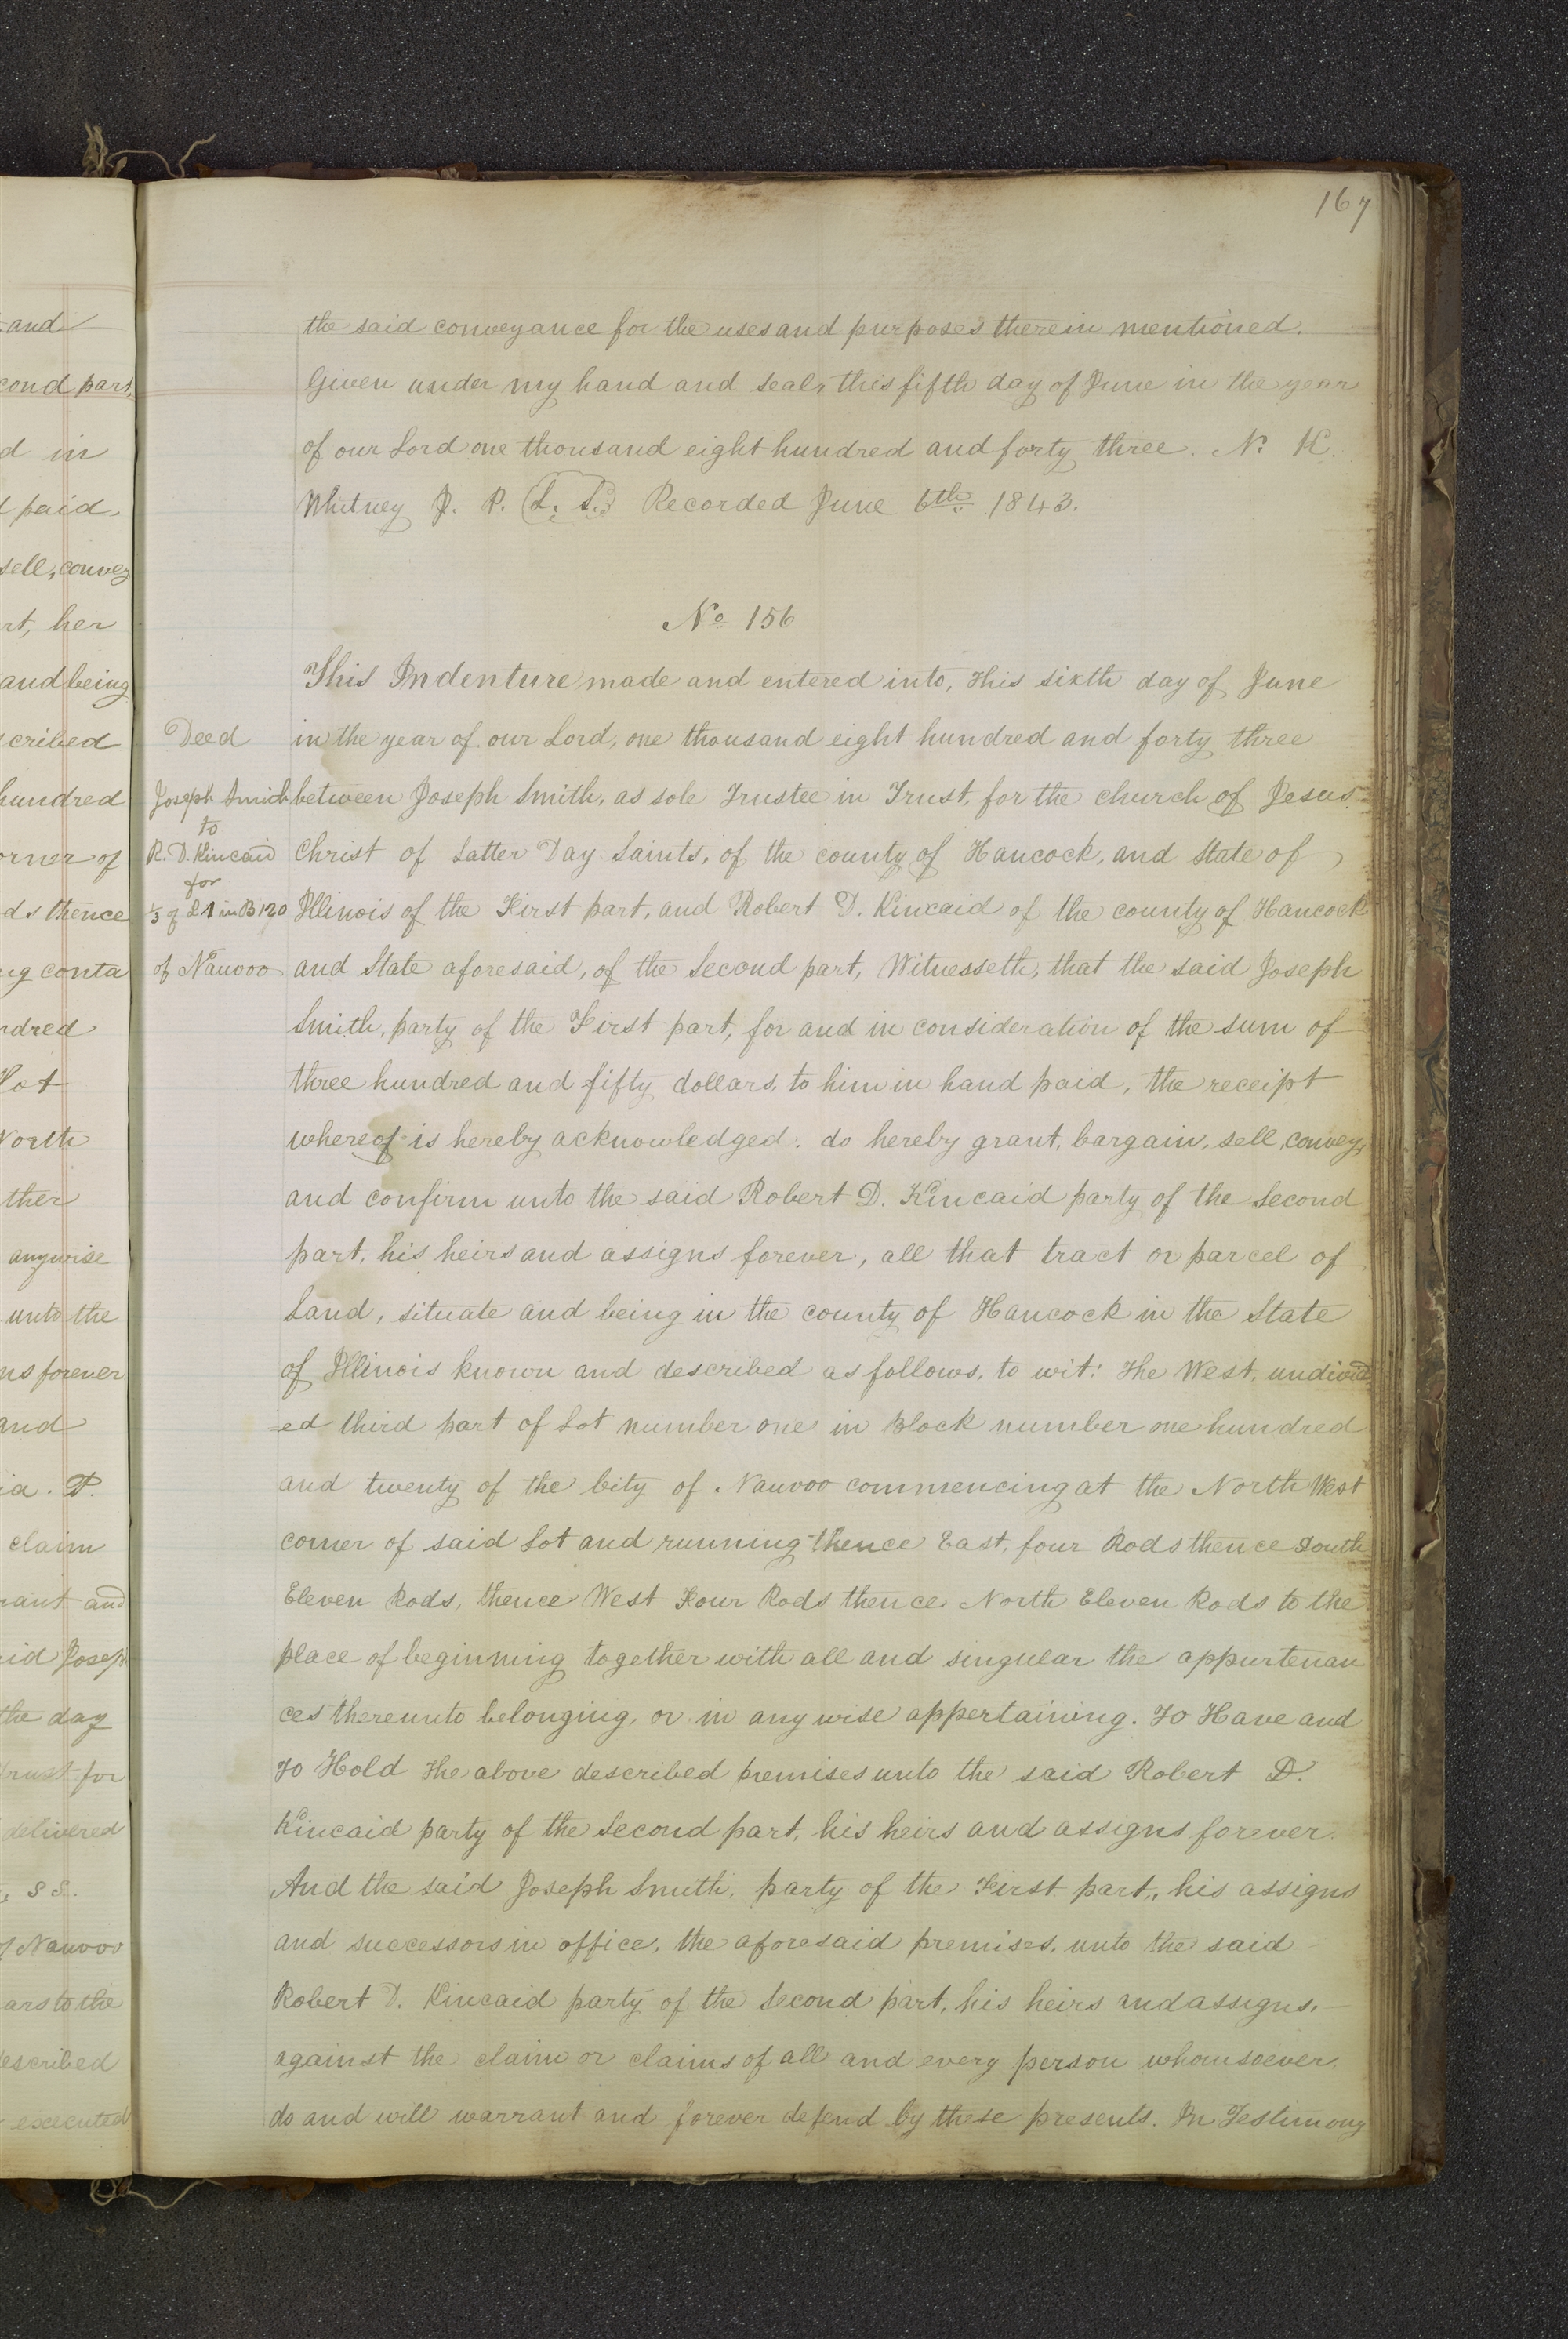 167
the said conveyance for the uses and purposes therein mentioned.
Given under my hand and seal, this fifth day of June in the year
of our Lord one thousand eight hundred and forty three. N. K.
Whitney J. P. (L. S.) Recorded June 6th 1843.
No 156
This Indenture made and entered into, this sixth day of June
in the year of our Lord, one thousand eight hundred and forty three
between Joseph Smith, as sole Trustee in Trust, for the church of Jesus
Christ of Latter Day Saints, of the county of Hancock, and State of
Illinois of the First part, and Robert D. Kincaid of the county of Hancock
and State aforesaid, of the Second part, Witnesseth, that the said Joseph
Smith, party of the First part, for and in consideration of the sum of
three hundred and fifty dollars, to him in hand paid, the receipt
whereof is hereby acknowledged: do hereby grant, bargain, sell, convey,
and confirm unto the said Robert D. Kincaid party of the Second
part, his heirs and assigns forever, all that tract or parcel of
Land, situate and being in the county of Hancock in the State
of Illinois known and described as follows, to wit: The West, undivid
-ed third part of Lot number one in Block number one hundred
and twenty of the City of Nauvoo commencing at the North West
corner of said Lot and running thence East, four Rods thence South
Eleven Rods, thence West Four Rods thence North Eleven Rods to the
place of beginning together with all and singular the appurtenan
ces thereunto belonging, or in any wise appertaining. To Have and
To Hold the above described premises unto the said Robert D.
Kincaid party of the Second part, his heirs and assigns forever.
And the said Joseph Smith, party of the First part, his assigns
and successors in office, the aforesaid premises, unto the said
Robert D. Kincaid party of the Second part, his heirs and assigns,
against the claim or claims of all and every person whomsoever,
do and will warrant and forever defend by these presents. In Testimony
Deed
Joseph Smith
to
R. D. Kincaid
for
1/3 of L 1 in B 120
of Nauvoo
and
cond part,
d in
paid,
sell, convey
rt, her
and being
scribed
hundred
orner of
ds thence
ng conta
ndred
Lot
North
ther
anywise
unto the
ns forever
and
ia. P.
claim
rant and
id Joseph
the day
Trust for
delivered
, SS.
of Nauvoo
ars to the
described
executed